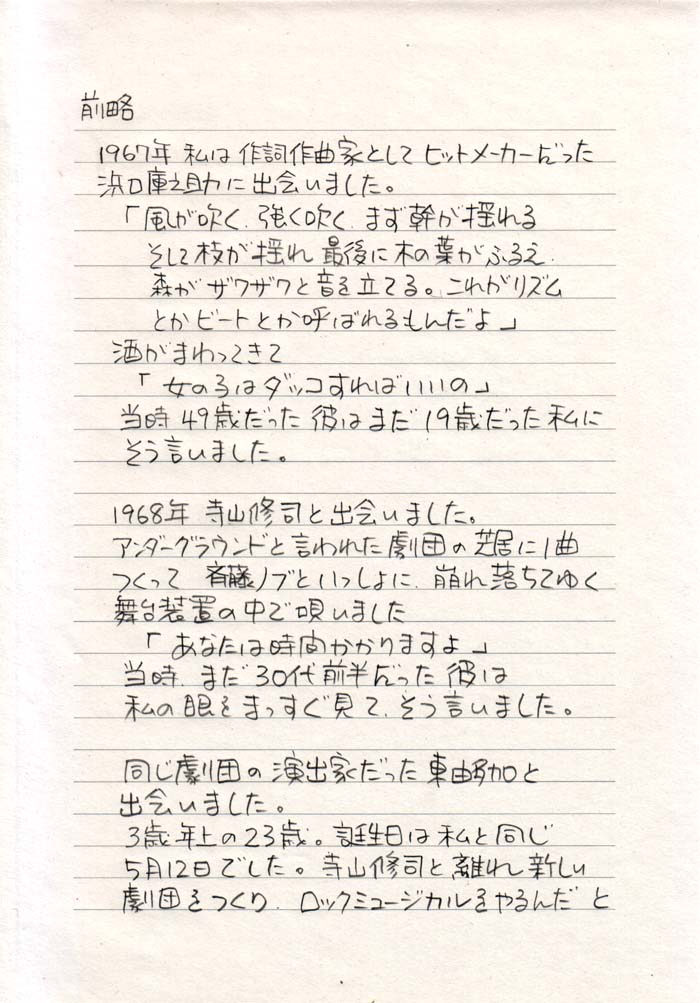 前略
1967年 私は 作詞作曲家として ヒットメーカーだった
浜口庫之助に出会いました。
「風が吹く、強く吹く、まず幹が揺れる
そして枝が揺れ 最後に木の葉がふるえ、
森が ザワザワと音を立てる。これがリズム
とか ビートとか呼ばれるもんだよ」
酒がまわってきて
「女の子はダッコすればいいの」
当時 49歳だった 彼は まだ 19歳だった 私に
そう言いました。
1968年 寺山修司と出会いました。
アンダーグラウンドと言われた劇団の芝居に1曲
つくって 斉藤ノブといっしょに、崩れ落ちてゆく
舞台装置の中で唄いました
「あなたは時間かかりますよ」
当時、まだ 30代前半だった 彼は
私の眼をまっすぐ見て、そう言いました。
同じ劇団の演出家だった 東由多加と
出会いました。
3歳年上の23歳。誕生日は私と同じ
5月12日でした。寺山修司と離れ新しい
劇団をつくり、ロックミュージカルをやるんだ と